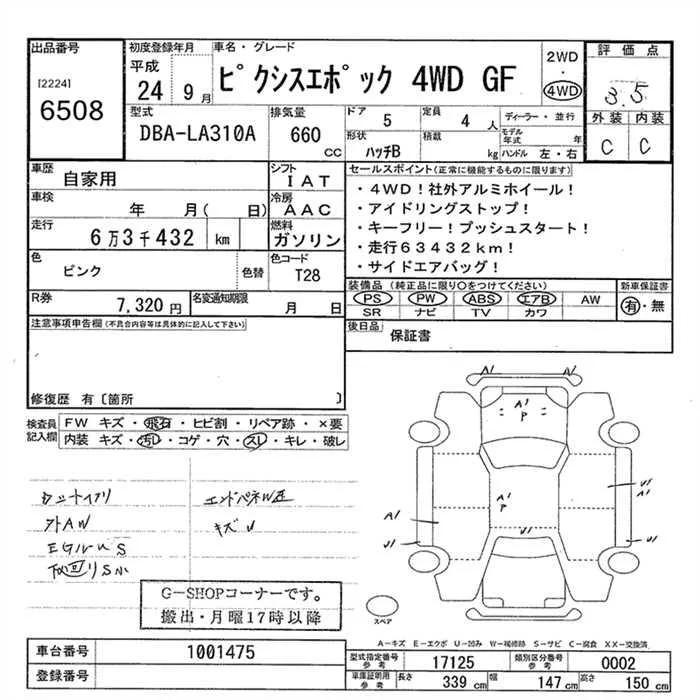 出品番号
[2224]
6508
初度登録年月
平成
24 9月
車名・グレード
ピクシスエポック 4WD GF
2WD
・
4WD
評価点
3.5
外装 内装
C C
型式
DBA-LA310A
排気量
660
CC
ドア 5
定員 4 人
ディーラー・並行
形状 ハッチB
積載 kg
モデル年式 年
ハンドル 左・右
車歴 自家用
シフト IAT
車検 年 月( 日)
冷房 AAC
走行 6万3千432 km
燃料 ガソリン
色 ピンク 色替
色コード T28
R券 7,320円
名変通知期限 月 日
セールスポイント(正常に機能するものに限ります)
・4WD!社外アルミホイール!
・アイドリングストップ!
・キーフリー!プッシュスタート!
・走行63432km!
・サイドエアバッグ!
装備品 (純正品に限り○をつけてください)
PS PW ABS エアB AW
SR ナビ TV カワ
新車保証書
有・無
後日品 保証書
注意事項申告欄(不具合内容等は具体的に記入して下さい)
修復歴 有〔箇所 〕
検査員記入欄
FW キズ・飛石・ヒビ割・リペア跡・×要
内装 キズ・汚レ・コゲ・穴・スレ・キレ・破レ
外AW
キズU
G-SHOPコーナーです。
搬出・月曜17時以降
A1 A1
A1
P
A1
P
A1
U1
U1
U1
U1
スペア
A-キズ E-エクボ U-凹み W-補修跡 S-サビ C-腐食 XX-交換済
車台番号 1001475
登録番号
型式指定番号参考 17125
類別区分番号参考 0002
車庫証明用参考 長さ 339 cm 幅 147 cm 高さ 150 cm